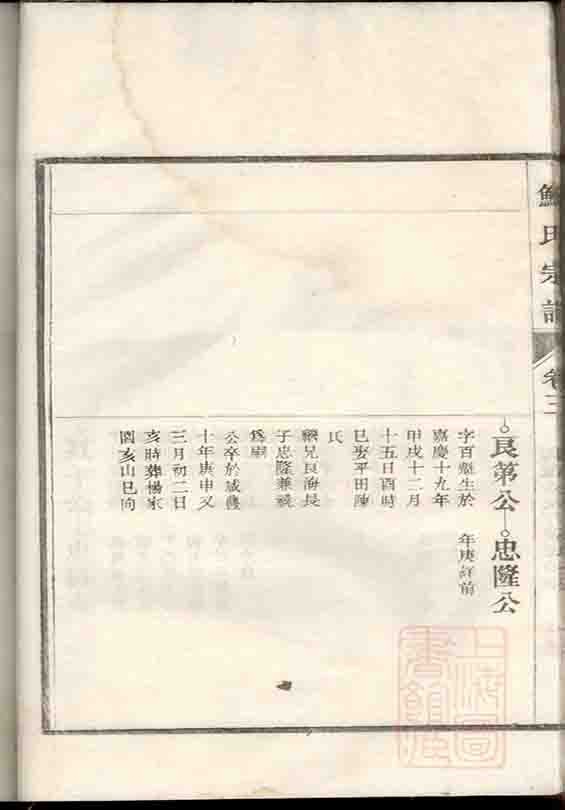 氏宗譜
卷三
良第公
忠隆公
字百魁生於
嘉慶十九年
甲戌十二月
十五日酉時
已娶平田陳
氏
繼兄良海長
子忠隆兼祧
為嗣
公卒於咸豐
十年庚申又
三月初二日
亥時葬楊家
園亥山巳向
年庚詳前
上海圖書館藏